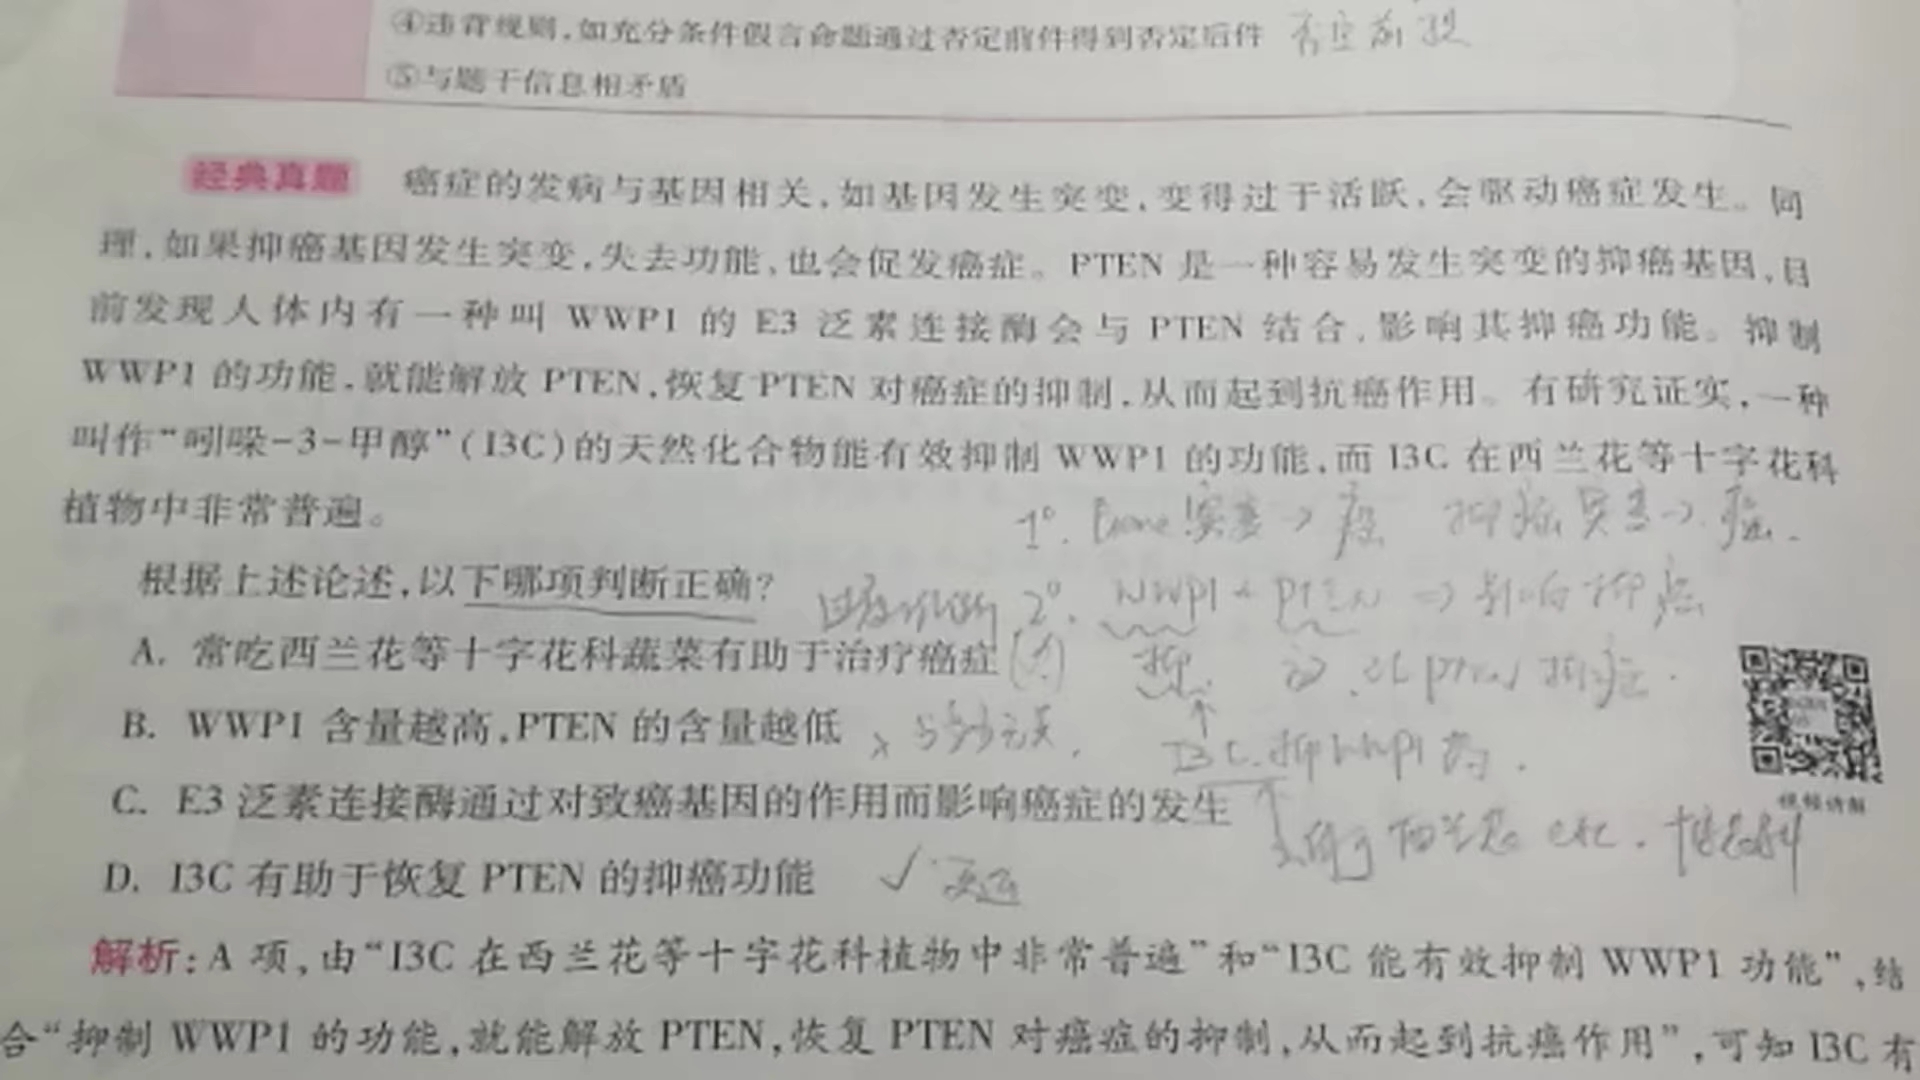 ④违背规则,如充分条件假言命题通过否定前件得到否定后件
⑤与题干信息相矛盾
经典真题 癌症的发病与基因相关,如基因发生突变,变得过于活跃,会驱动癌症发生。同
理,如果抑癌基因发生突变,失去功能,也会促发癌症。PTEN 是一种容易发生突变的抑癌基因,目
前发现人体内有一种叫 WWP1 的 E3 泛素连接酶会与 PTEN 结合,影响其抑癌功能。抑制
WWP1 的功能,就能解放 PTEN,恢复 PTEN 对癌症的抑制,从而起到抗癌作用。有研究证实,一种
叫作“吲哚-3-甲醇”(I3C)的天然化合物能有效抑制 WWP1 的功能,而 I3C 在西兰花等十字花科
植物中非常普遍。
1°. 突变→癌 抑癌突变→癌.
根据上述论述,以下哪项判断正确?
过度推断 2°. WWP1 + PTEN ⇒ 影响抑癌
A. 常吃西兰花等十字花科蔬菜有助于治疗癌症
抑
B. WWP1 含量越高,PTEN 的含量越低
× I3C.抑WWP1
C. E3 泛素连接酶通过对致癌基因的作用而影响癌症的发生
视频讲解
西兰花 etc.
D. I3C 有助于恢复 PTEN 的抑癌功能 ✓
解析:A 项,由“I3C 在西兰花等十字花科植物中非常普遍”和“I3C 能有效抑制 WWP1 功能”,结
合“抑制 WWP1 的功能,就能解放 PTEN,恢复 PTEN 对癌症的抑制,从而起到抗癌作用”,可知 I3C 有